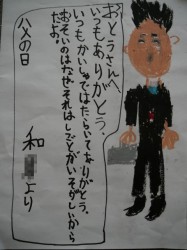 おとうさんへ
いつもありがとう。
いつもかいしゃではたらいてありがとう。
おそいのはなぜそれはしごとがいそがしいから
だよ。
ハメの日
和
より